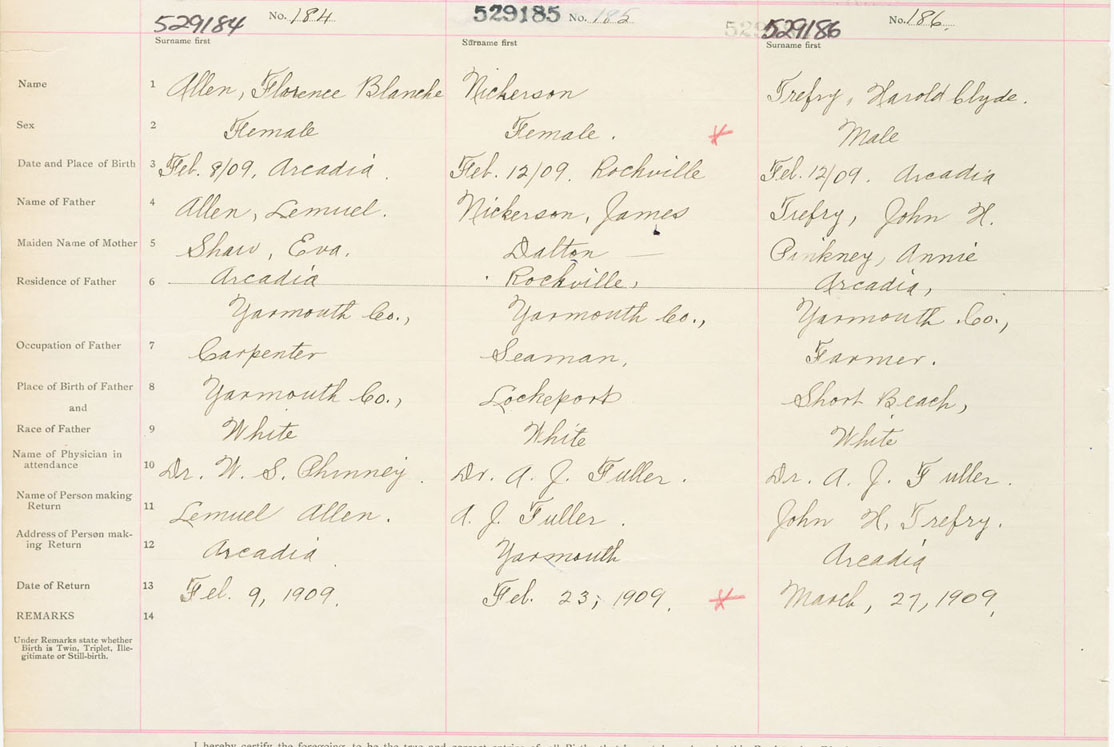 529184 No. 184 529185 No. 185 529186 No. 186.
Surname first Surname first Surname first
Name 1 Allen, Florence Blanche Nickerson Trefry, Harold Clyde.
Sex 2 Female Female. Male
Date and Place of Birth 3 Feb. 8/09, Arcadia. Feb. 12/09. Rockville Feb. 12/09. Arcadia
Name of Father 4 Allen, Lemuel. Nickerson, James Trefry, John H.
Maiden Name of Mother 5 Shaw, Eva. Dalton — Pinkney, Annie
Residence of Father 6 Arcadia Rockville, Arcadia,
Yarmouth Co., Yarmouth Co., Yarmouth Co.,
Occupation of Father 7 Carpenter Seaman, Farmer.
Place of Birth of Father 8 Yarmouth Co., Lockeport Short Beach,
and
Race of Father 9 White White White
Name of Physician in
attendance 10 Dr. W. S. Phinney. Dr. A. J. Fuller. Dr. A. J. Fuller.
Name of Person making
Return 11 Lemuel Allen. A. J. Fuller. John H. Trefry.
Address of Person mak-
ing Return 12 Arcadia Yarmouth Arcadia
Date of Return 13 Feb. 9, 1909. Feb. 23, 1909. March, 27, 1909.
REMARKS 14
Under Remarks state whether
Birth is Twin, Triplet, Ille-
gitimate or Still-birth.
I hereby certify the foregoing to be the true and correct entries of all Births